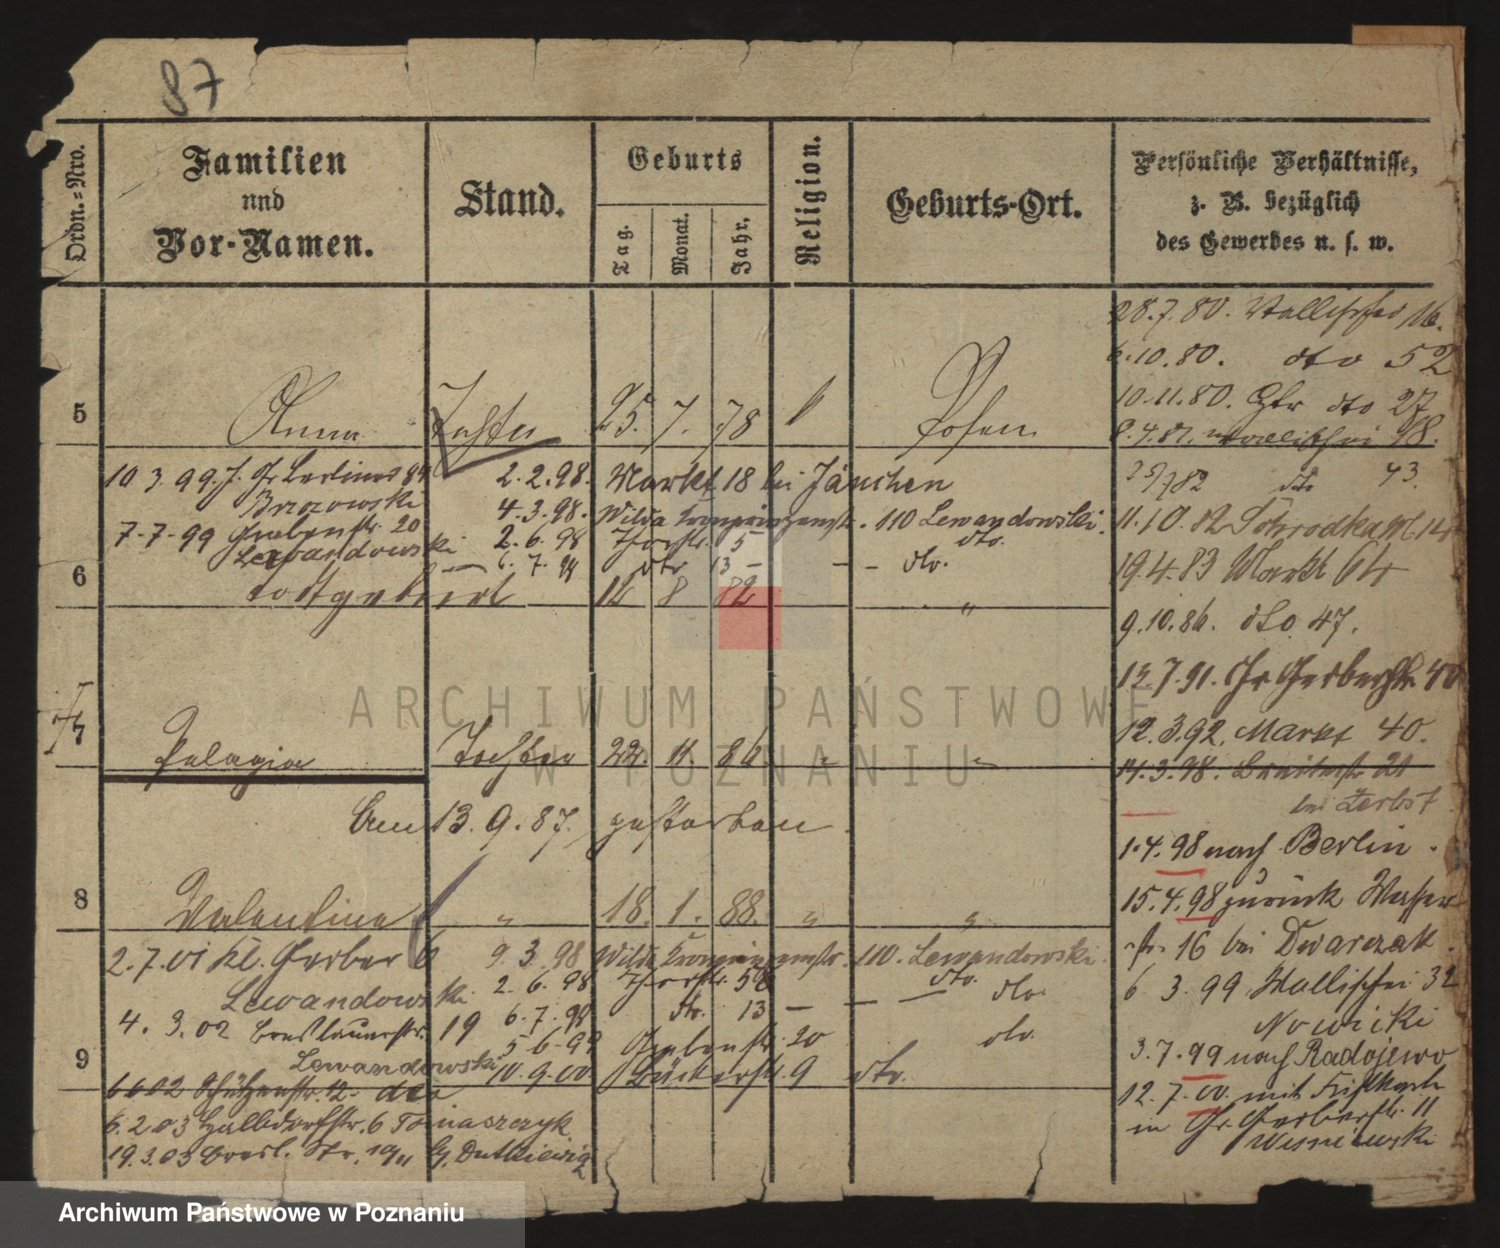 87
Ordn.=Nro.
Familien
und
Vor-Namen.
Stand.
Geburts
Tag.
Monat.
Jahr.
Religion.
Geburts-Ort.
Persönliche Verhältnisse,
z. B. bezüglich
des Gewerbes u. s. w.
28.7.80. Wallischei 16.
6.10.80. dto 52
10.11.80. dto 27
8.4.81. Wallischei 98.
5 Anna Tochter 25. 7. 78 Posen
82 dto 43.
10 3. 99. Gr Berliner 84 2.2.98. Markt 18 bei Jänchen
Brzozowski 4.3.98. Wilda Kronprinzenstr. 110 Lewandowski.
7-7-99 Grabenstr. 20 2.6.98 Thorstr. 5 dto.
Lewandowski 6.7.98 dto 13 — — — dto.
6 todtgeburt 12 8 82 "
11.10.82 Schrodkamkt. 14
19.4.83 Markt 64
9.10.86. dto 47.
12.7.91. Gr Gerberstr. 40
12.3.92. Markt 40.
7 Pelagia Tochter 22. 11. 86 " "
14.3.98. Breitestr 21
bei Zerbst
Am 13. 9. 87. gestorben.
1.4.98 nach Berlin.
8 Valentine " 18. 1. 88. " "
15.4.98 zurück Wasser
str. 16 bei Dwarczak.
2.7.01 Kl. Gerber 6 9.3.98 Wilda Kronprinzenstr. 110. Lewandowski
Lewandowski 2.6.98 Thorstr. 5 dto.
6. 3. 99 Wallischei 32
Nowicki
6.7.98 dto. 13 — — — dto.
4. 3. 02 Breslauerstr. 19 5 6-99 Grabenstr. 20 dto.
Lewandowski 10.9.00 Bäckerstr. 9 dto.
9
3.7.99 nach Radojewo
6 6 02 Schützenstr. 12- dto
12.7.00. mit
in Gr. Gerberstr. 11
Wisniewski
6.2.03 Halbdorfstr. 6 Tomaszczyk
19.3.03 Bresl. Str. 19 G. Dutkiewicz
ARCHIWUM PAŃSTWOWE
W POZNANIU
Archiwum Państwowe w Poznaniu